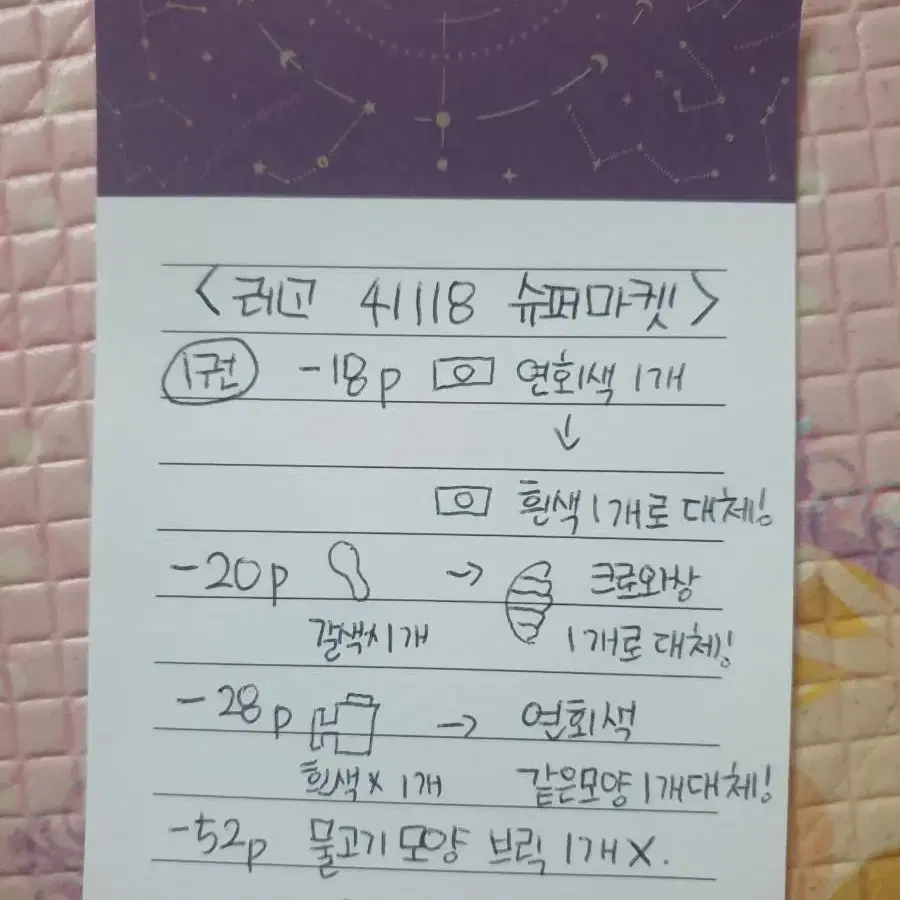 <레고 41118 슈퍼마켓>
1권 -18p 연회색 1개
↓
흰색 1개로 대체함
-20p → 크로와상
갈색 1개 1개로 대체함
-28p → 연회색
흰색x 1개 같은모양 1개대체함
-52p 물고기 모양 브릭 1개 X.